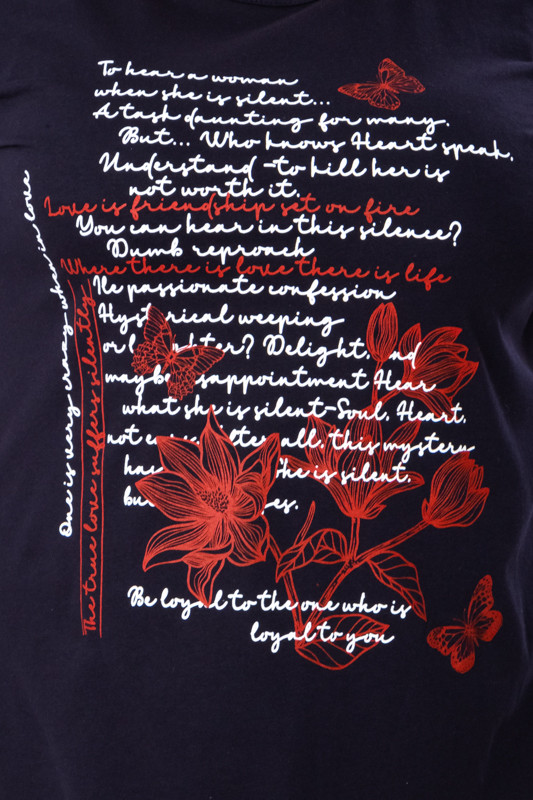 To hear a woman
when she is silent...
A task daunting for many.
But... Who knows Heart speak.
Understand -to kill her is
not worth it.
Love is friendship set on fire
You can hear in this silence?
Dumb reproach
Where there is love there is life
Ile passionate confession
Hysterical weeping
or laughter? Delight, and
maybe disappointment Hear
what she is silent-Soul, Heart,
not After all, this mystery
She is silent,
Be loyal to the one who is
loyal to you
One is very crazy when in love
The true love suffers silently